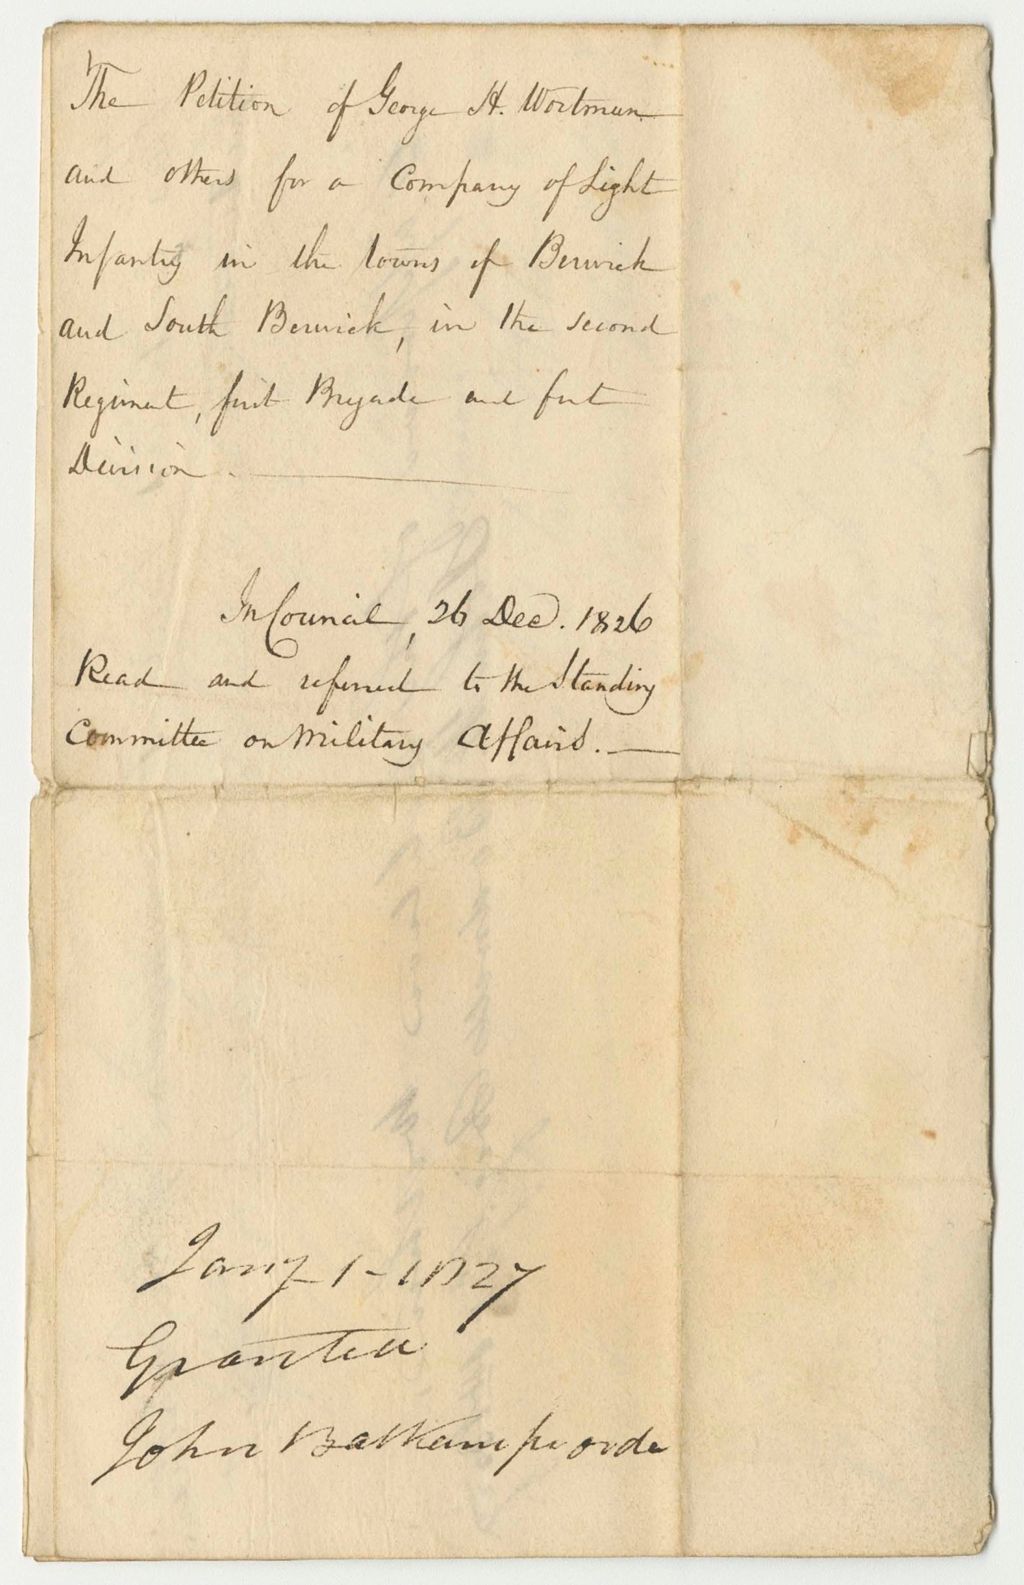 The Petition of George H. Wortman
and others for a Company of Light
Infantry in the towns of Berwick
and South Berwick, in the second
Regiment, first Brigade and first
Division.
In Council, 26 Dec. 1826
Read and referred to the Standing
Committee on Military Affairs.
Jany 1 - 1827
Granted
John pr order